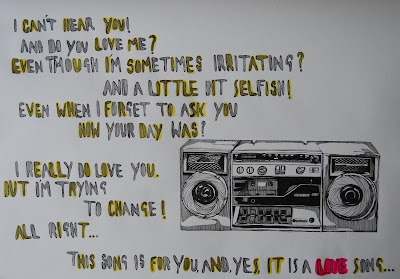 I CAN'T HEAR YOU!
AND DO YOU LOVE ME?
EVEN THOUGH I'M SOMETIMES IRRITATING?
AND A LITTLE BIT SELFISH!
EVEN WHEN I FORGET TO ASK YOU
HOW YOUR DAY WAS?
I REALLY DO LOVE YOU.
BUT I'M TRYING
TO CHANGE!
ALL RIGHT...
THIS SONG IS FOR YOU. AND. YES, IT IS A LOVE SONG...